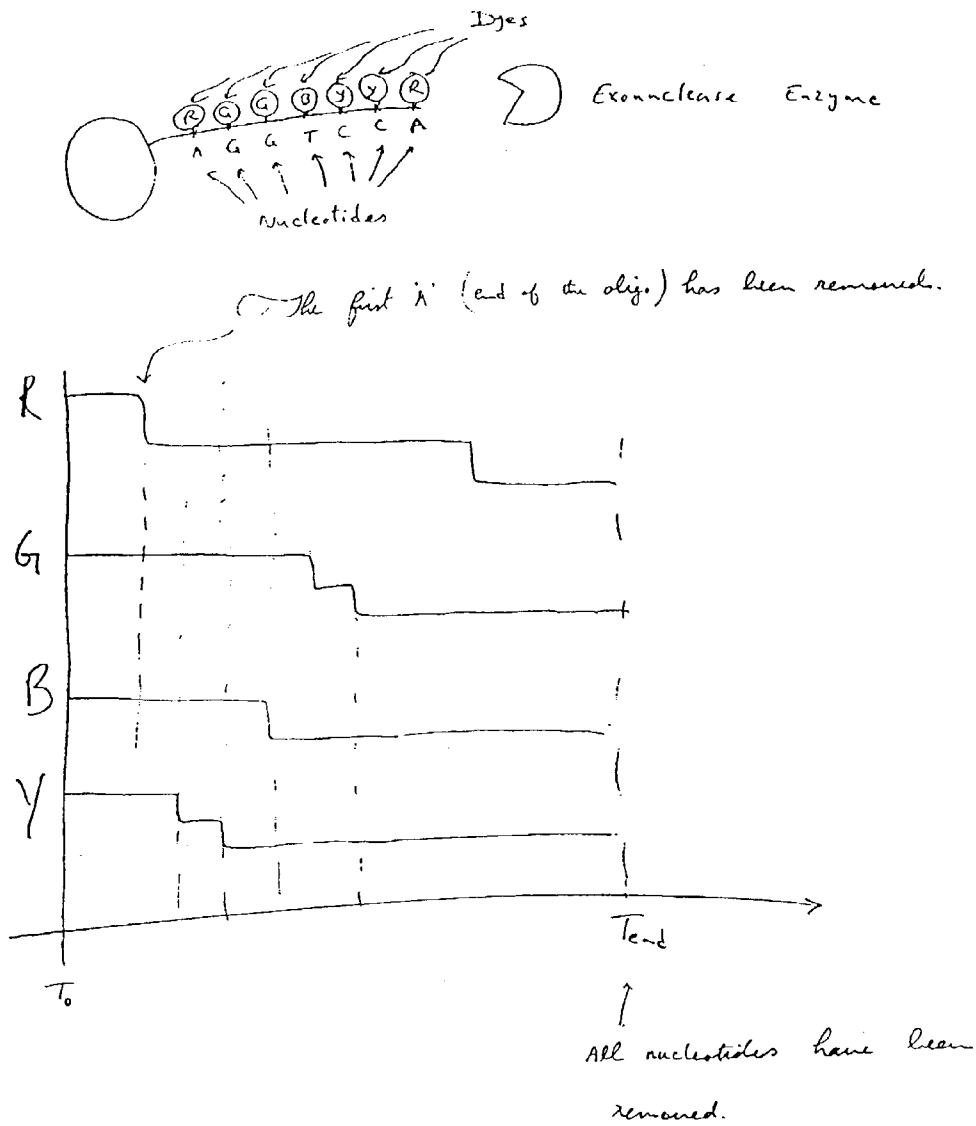 Dyes
R G G B Y Y R
Exonuclease Enzyme
A G G T C C A
Nucleotides
The first 'A' (end of the oligo) has been removed.
R
G
B
Y
Tend
T₀
All nucleotides have been
removed.